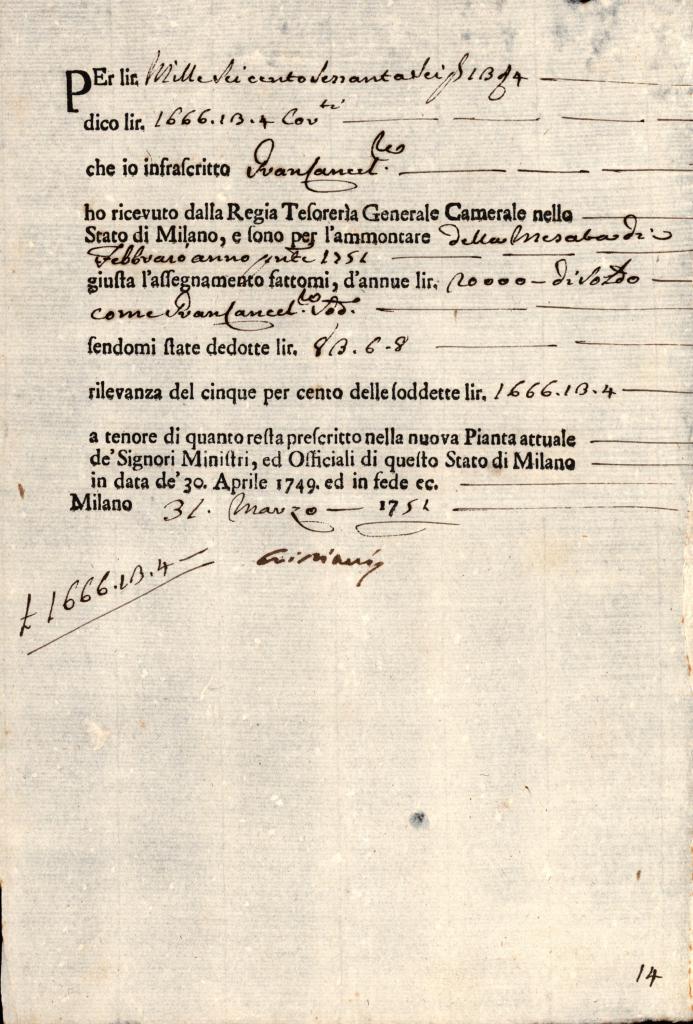 PEr lir. Mille Seicento Sessanta Sei ſ 13 ꝺ 4
dico lir. 1666.13.4 Cor.ti
che io infraſcritto Gran Cancel.re
ho ricevuto dalla Regia Teſorerìa Generale Camerale nello
Stato di Milano, e ſono per l'ammontare della Mesata di
Febbraro anno pnte 1751
giuſta l'aſſegnamento fattomi, d'annue lir. 20000 – di Soldo
come Gran Cancel.re Sod.
ſendomi ſtate dedotte lir. 83.6.8
rilevanza del cinque per cento delle ſoddette lir. 1666.13.4
a tenore di quanto reſta preſcritto nella nuova Pianta attuale
de' Signori Miniſtri, ed Officiali di queſto Stato di Milano
in data de' 30. Aprile 1749. ed in fede ec.
Milano 31. Marzo – 1751
Cristiani
£ 1666.13.4 –
14